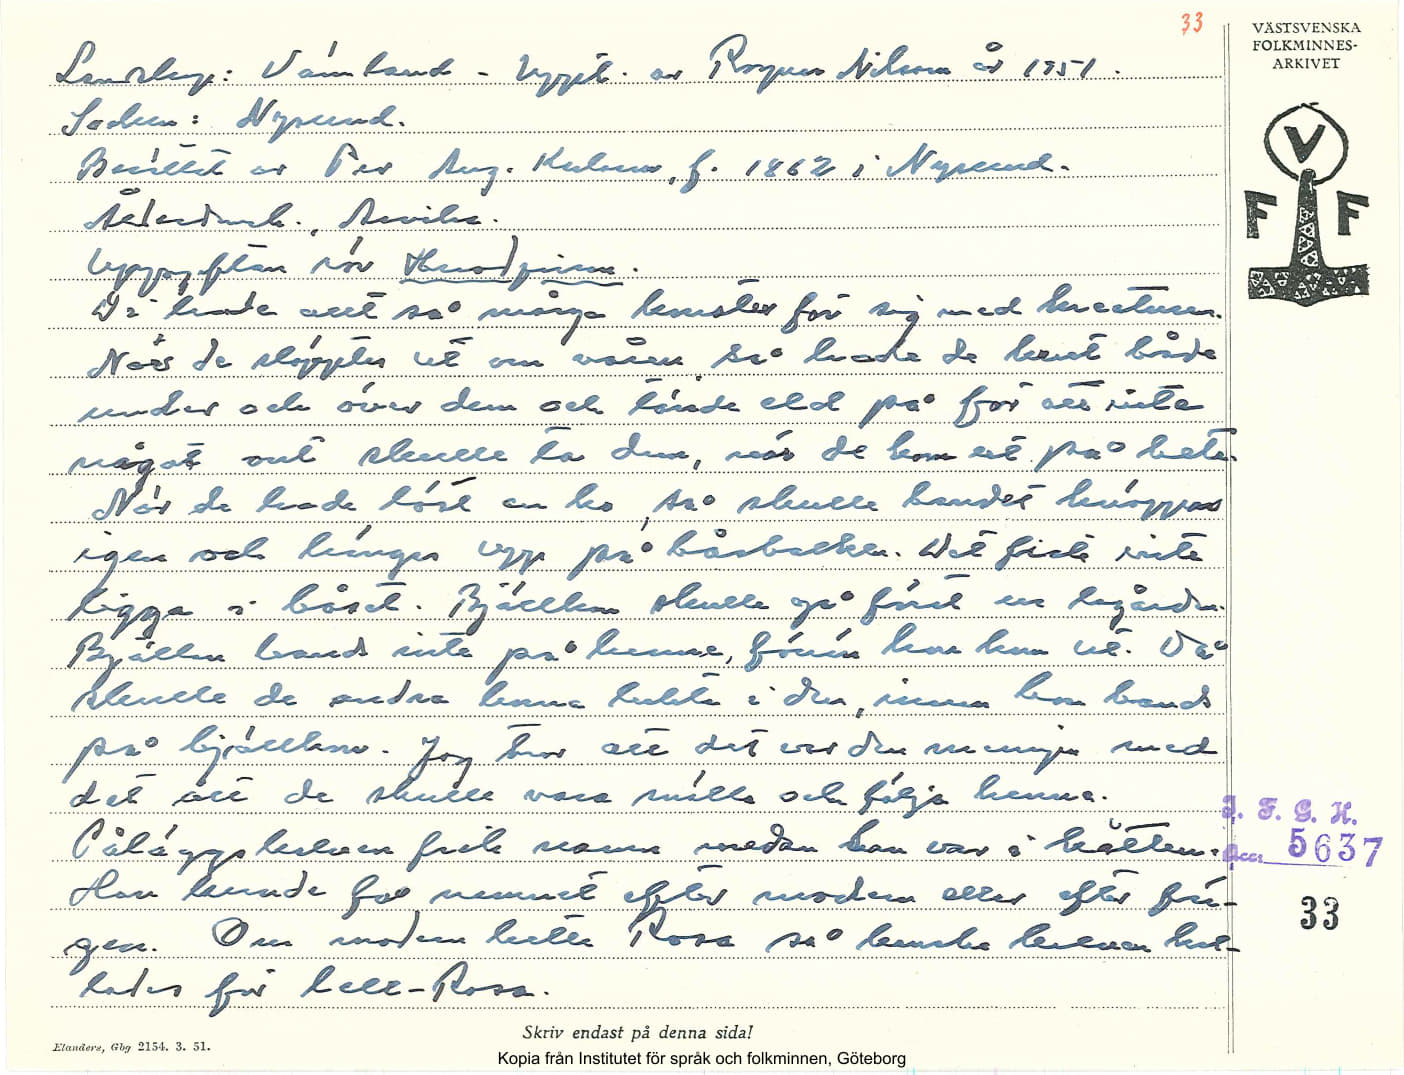 33
VÄSTSVENSKA
FOLKMINNES-
ARKIVET
V
F F
Landskap: Värmland - Uppt. av Ragnar Nilsson år 1951.
Socken: Nysund.
Berättat av Per Aug. f. 1862 i Nysund.
Arvika.
Uppgiften rör Husdjuren.
De hade allt så många konster för sig med kreaturen.
När de släpptes ut om våren så hade de krut både
under och över dem och tände eld på för att inte
något ont skulle ta dem, när de kom ut på bete.
När de hade löst en ko, så skulle bandet knäppas
igen och hängas upp på båsbalken. Det fick inte
ligga i båset. Bjällkon skulle gå först ur lagården.
Bjällan bands inte på henne, förrn hon kom ut. Då
skulle de andra korna lukta i den, innan hon bands
på bjällkon. Jag tror att det var den meningen med
det att de skulle vara snälla och följa henne.
Påläggskalven fick namn medan han var i kätten.
Han kunde få namnet efter modern eller efter fär-
gen. Om modern hette Rosa så kanske kalven kal-
lades för Lell-Rosa.
I. F. G. H.
Acc. 5637
33
Skriv endast på denna sida!
Elanders, Gbg 2154. 3. 51.
Kopia från Institutet för språk och folkminnen, Göteborg